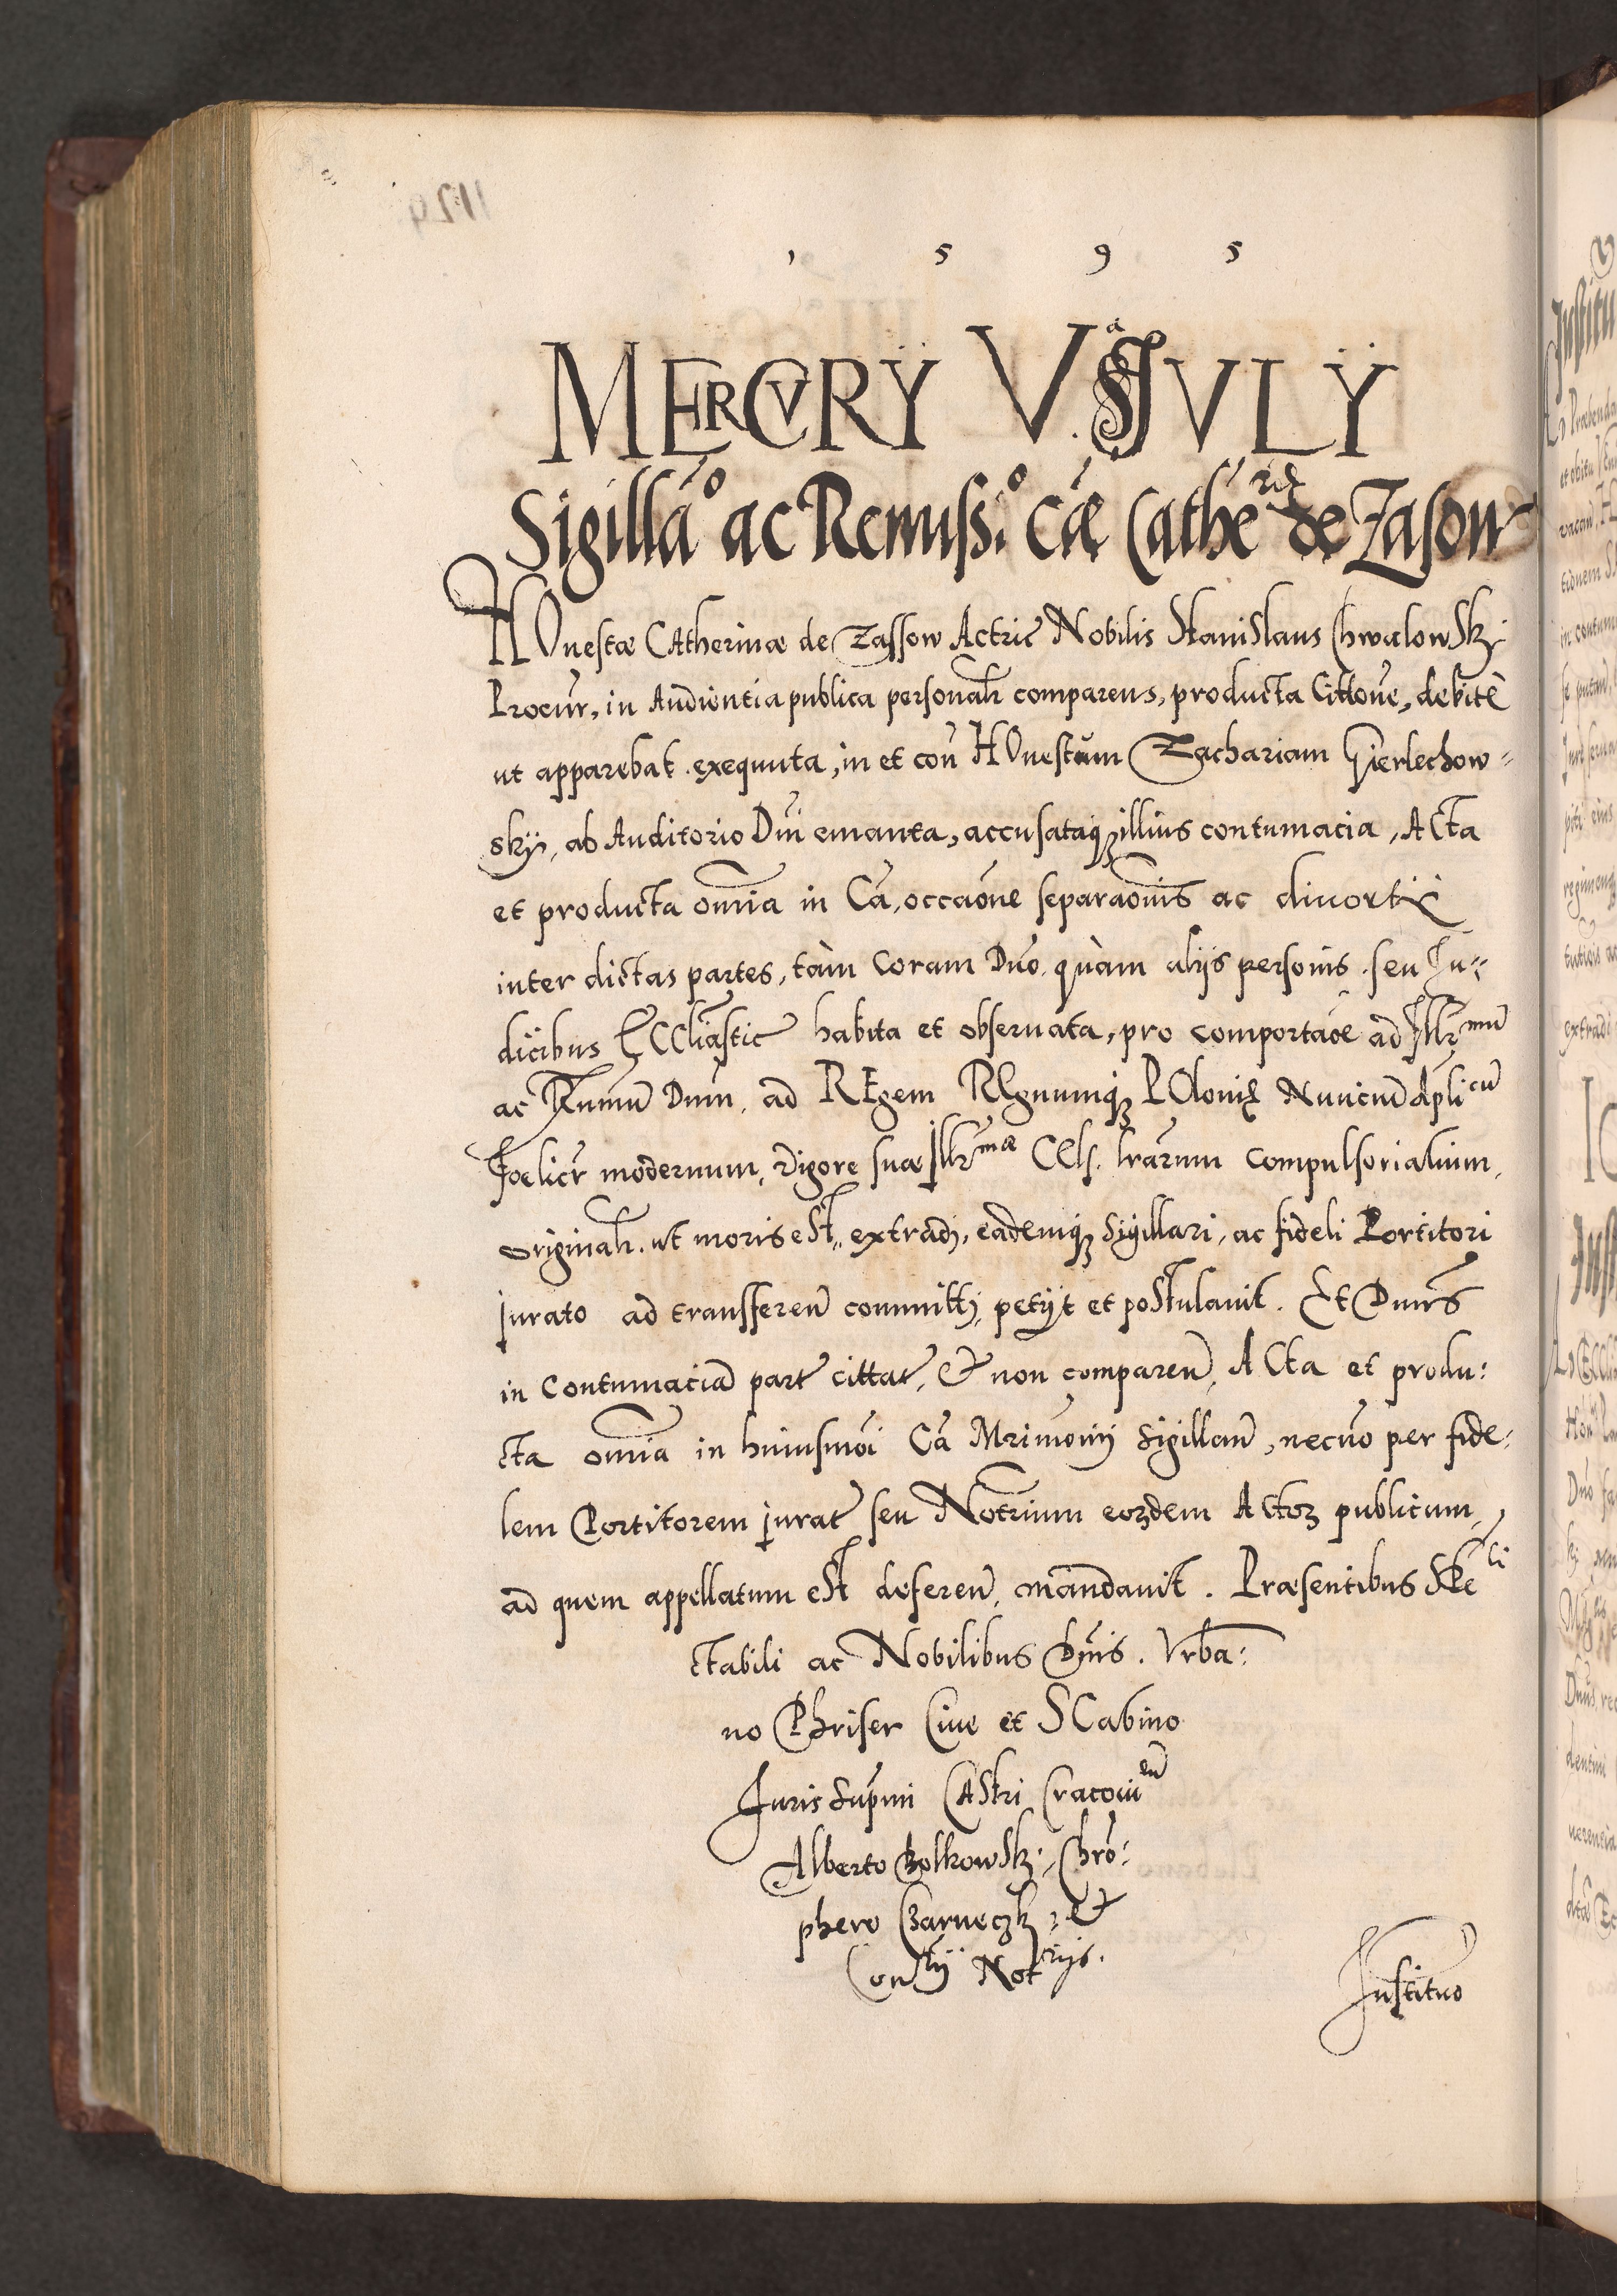 1 5 9 5
MERCVRÝ V.ta JVLÝ
Sigillão ac Remiss:o Cæ Catheriȩ de Zasow
HOnestæ CAtherinæ de Zassow Actric Nobilis StaniSlaus ChwalowSkj
Procur̃, in Audientia publica personalr̃ comparens, producta Cittõne, debitè
ut apparebat exequuta, in et cõn HOnestum Zachariam Gierlechow=
skÿ, ab Auditorio Dñi emanta, accusataqꝫ illius contumacia, ACta
et producta om̃ia in Cã, occaõne separaõnis ac diuortij
inter dictas partes, tàm coram Dño quàm alijs personis seu Iu=
dicibus ECCliãstic habita et obseruata, pro comportaõe ad Illr̃mũ
ac Rñmũ Dñm, ad REgem REgnumqꝫ POloniȩ Nunciũ Apłicũ
Foelicr̃ modernum, vigore suæ Illr̃mæ CEls. lr̃arum compulsorialium,
originalr̃. ut moris eSt, extradj, eademqꝫ sigillari, ac fideli Portitori
jurato ad transfereñ committj, petijt et poStulauit. Et Dñus
in contumaciã part cittat, & non compareñ, ACta et produ:
cta om̃ia in huiusmõi Cã Mrimonij sigillañ, necño per fide:
lem Portitorem jurat seu Notrium eoꝝdem ACtoꝝ publicum,
ad quem appellatum eSt defereñ, mandauit. Præsentibus SPe
ctabili ac Nobilibus Dñis. Vrba:
no Phriser Ciue et SCabino
Iuris Supmi CAStri Cracouieñ
Alberto BolkowSkj, Chrõ:
phero Czarneczkj, &
Conrij Notrijs.
Instituo